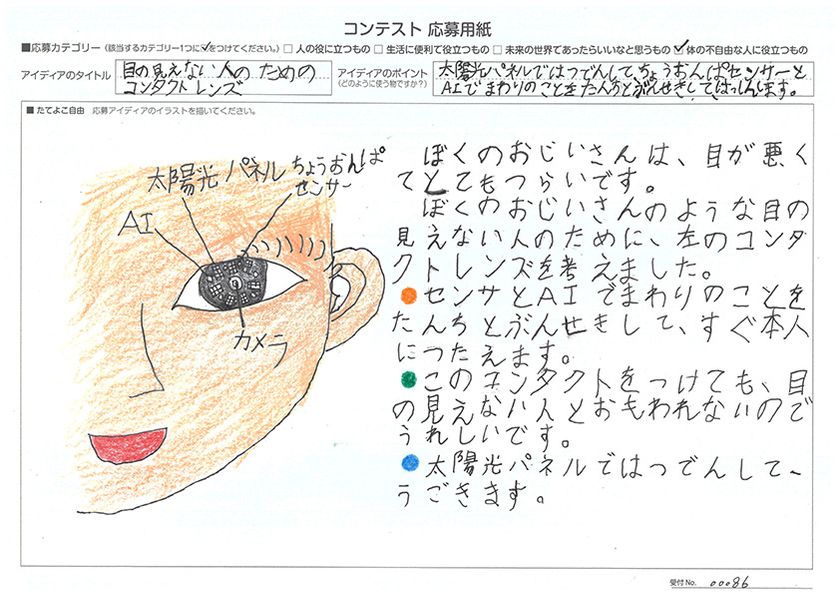 コンテスト 応募用紙
■応募カテゴリー（該当するカテゴリー1つに✓をつけてください。）□ 人の役に立つもの □ 生活に便利で役立つもの □ 未来の世界であったらいいなと思うもの ☑ 体の不自由な人に役立つもの
アイディアのタイトル
目の見えない人のための
コンタクトレンズ
アイディアのポイント
（どのように使う物ですか？）
太陽光パネルではつでんして、ちょうおんぱセンサーと
AIでまわりのことをたんちとぶんせきしてはっしんします。
■ たてよこ自由 応募アイディアのイラストを描いてください。
太陽光パネル
ちょうおんぱ
センサー
AI
カメラ
ぼくのおじいさんは、目が悪く
てとてもつらいです。
ぼくのおじいさんのような目の
見えない人のために、左のコンタ
クトレンズを考えました。
センサとAIでまわりのことを
たんちとぶんせきして、すぐ本人
につたえます。
このコンタクトをつけても、目
の見えない人とおもわれないので
うれしいです。
太陽光パネルではつでんして、
うごきます。
受付No. 00086